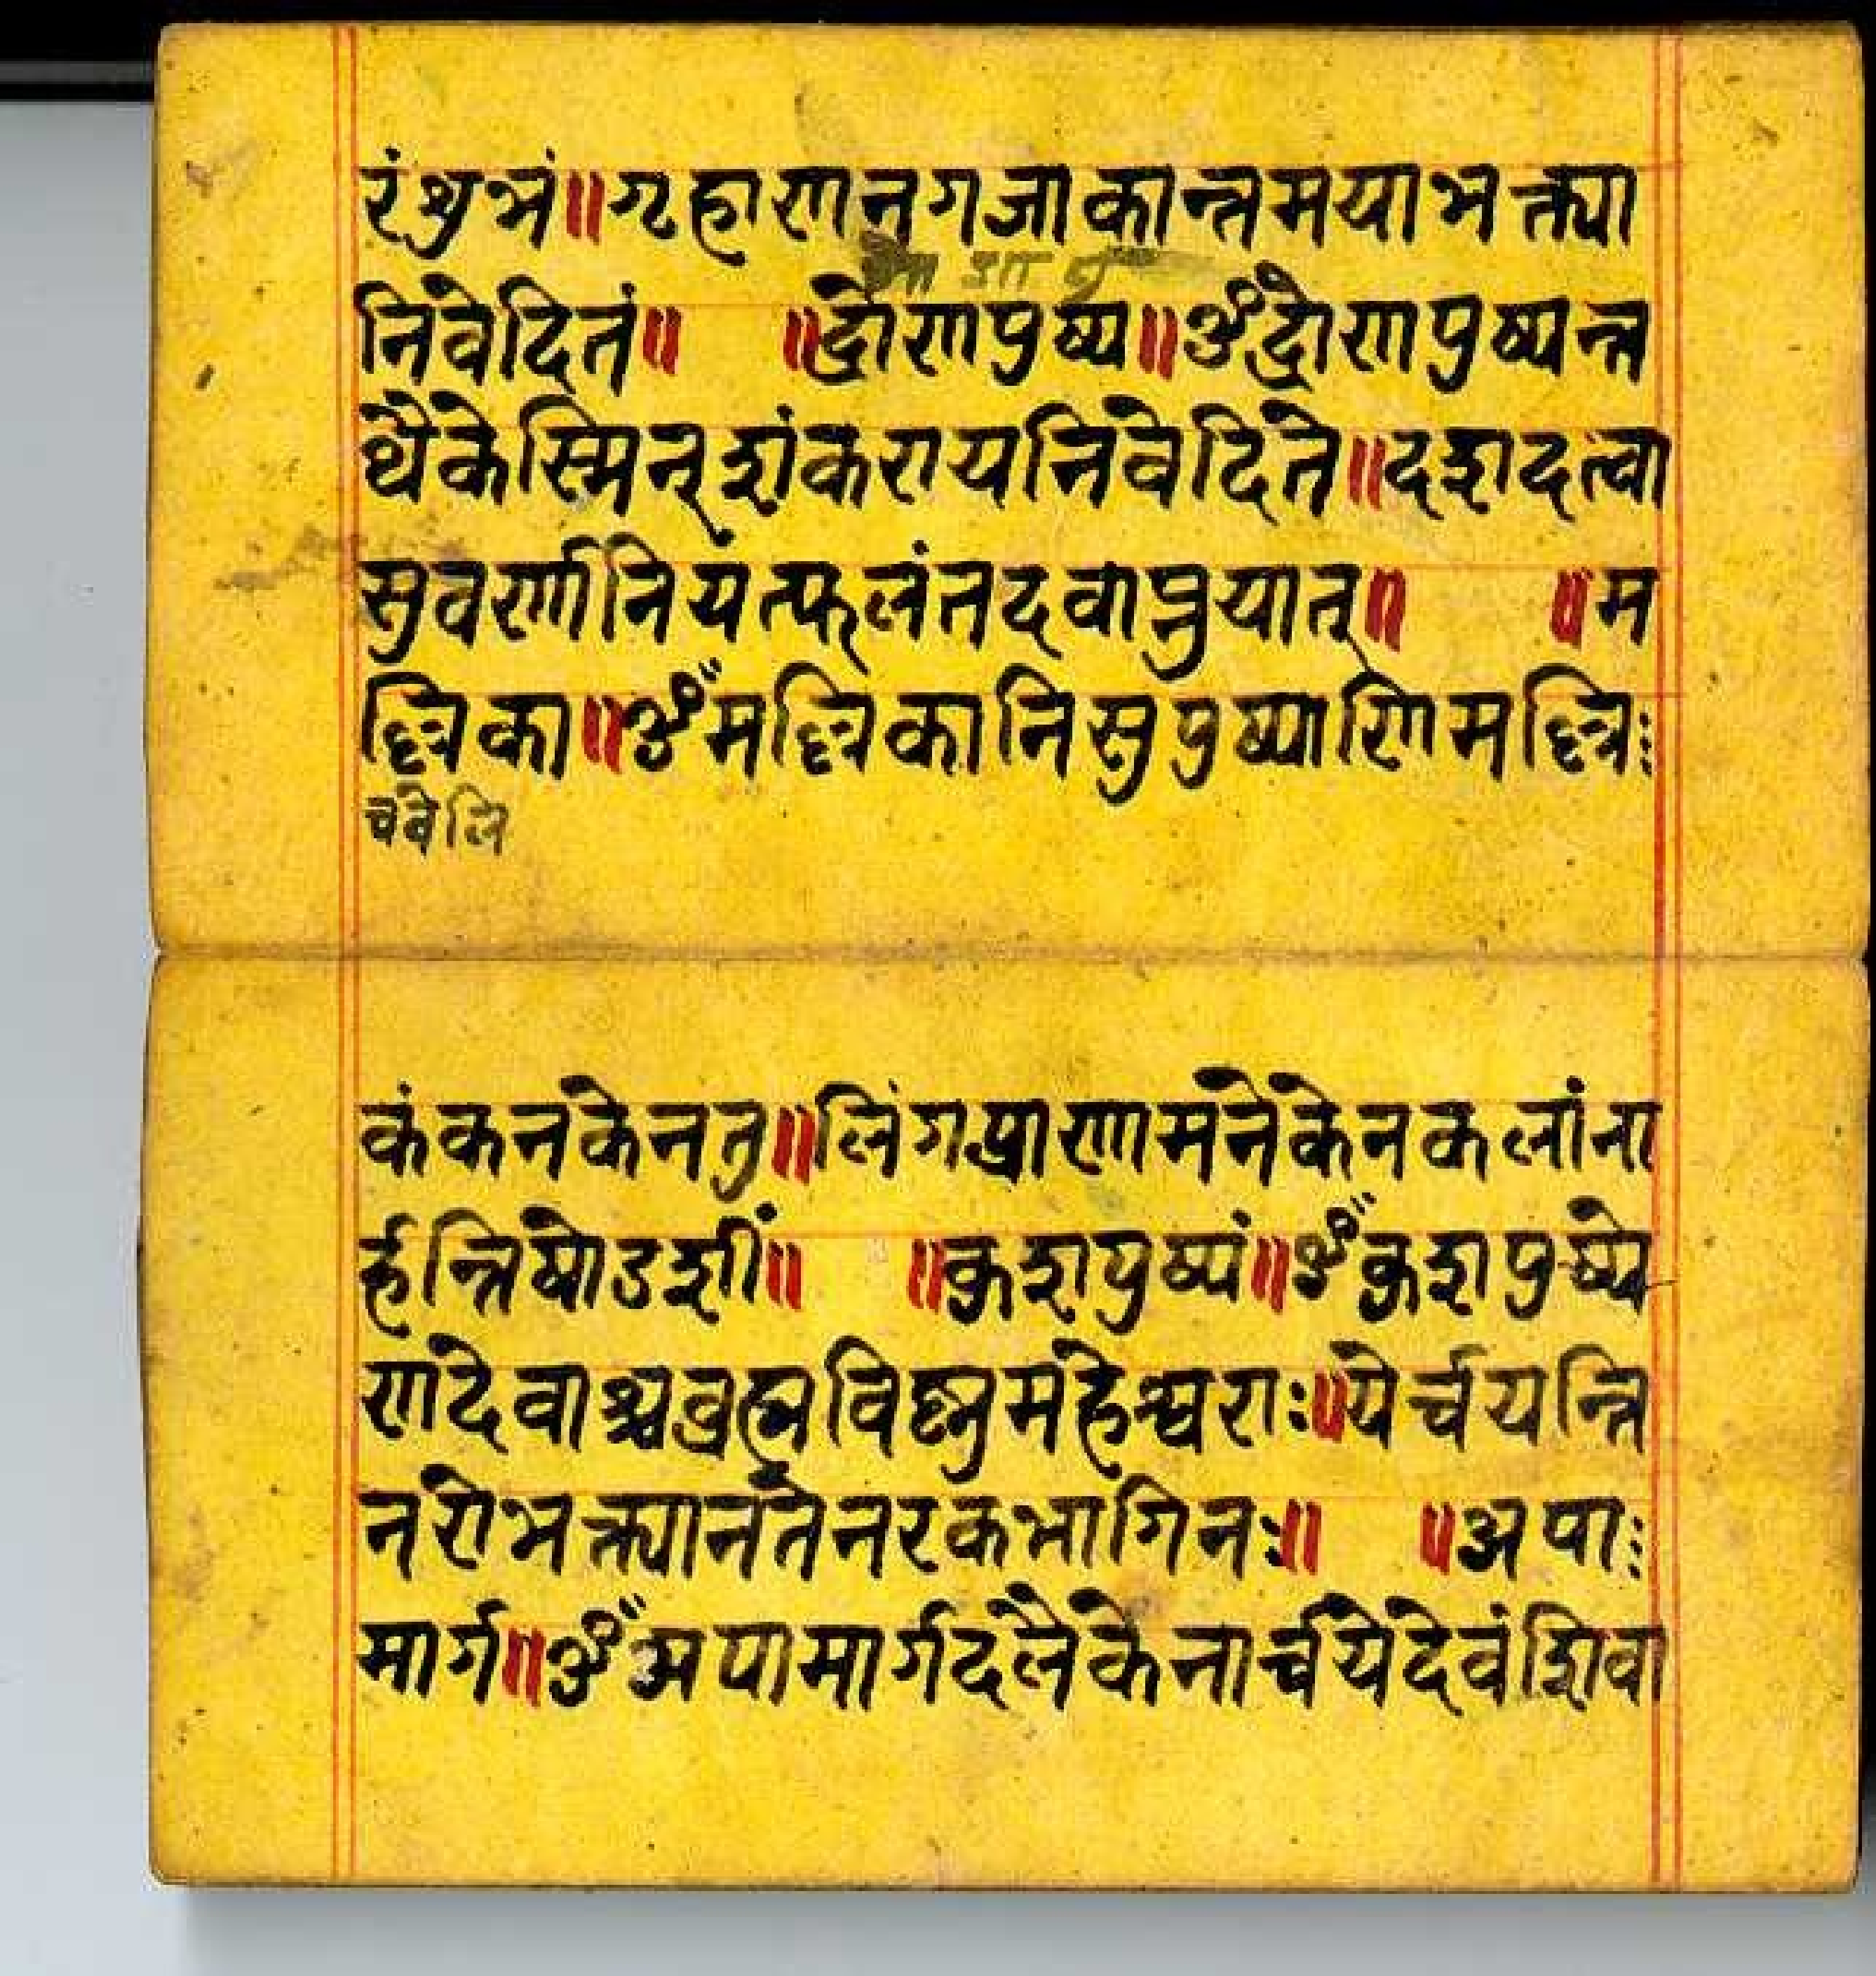 रंशुभ्रं॥गृहाणनगजाकान्तमयाभक्त्या
निवेदितं॥ ॥द्रोणपुष्प॥ॐद्रोणपुष्पन्त
थैकेस्मिन्शंकरायनिवेदिते॥दशदत्वा
सुवर्णानियत्फलंतदवाप्नुयात्॥ ॥म
ल्लिका॥ॐमल्लिकानिसुपुष्पाणिमल्लि
चंवेलि
कंकनकेनतु॥लिंगप्राणमनेकेनकलांना
र्हन्तिषोडशीं॥ ॥कुशपुष्पं॥ॐकुशपुष्पे
णदेवाश्चब्रह्मविष्णुमहेश्वराः॥येर्चयन्ति
नरोभक्त्यानतेनरकभागिनः॥ ॥अपा
मार्ग॥ॐअपामार्गदलैकेनार्चयेदेवंशिवा